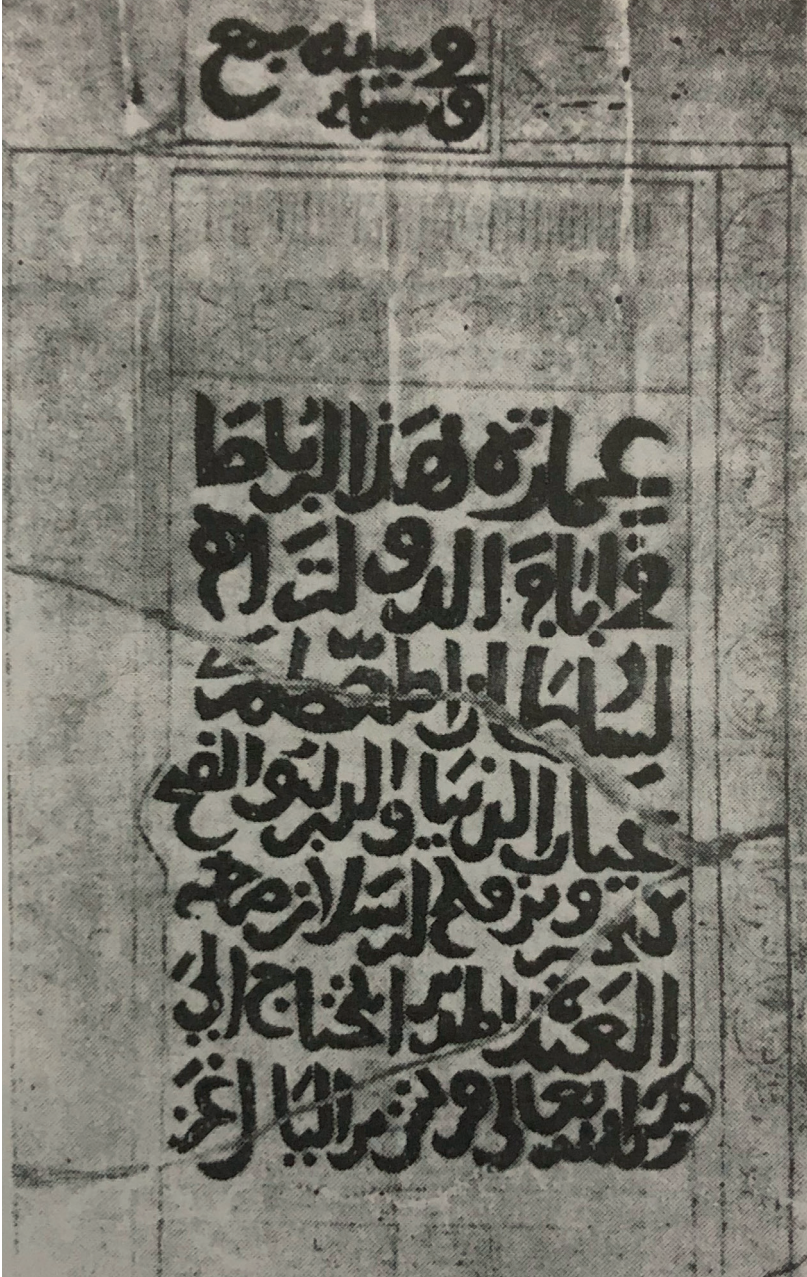 في سنه سبع
وستمائة
عمارة هذا الرباط
في الدولت
لسلطان المعظم
غياث الدنيا والدين ابو الفتح
كيخسرو بن قلج ارسلان
العبد المذنب المحتاج الى
رحمة الله تعالى